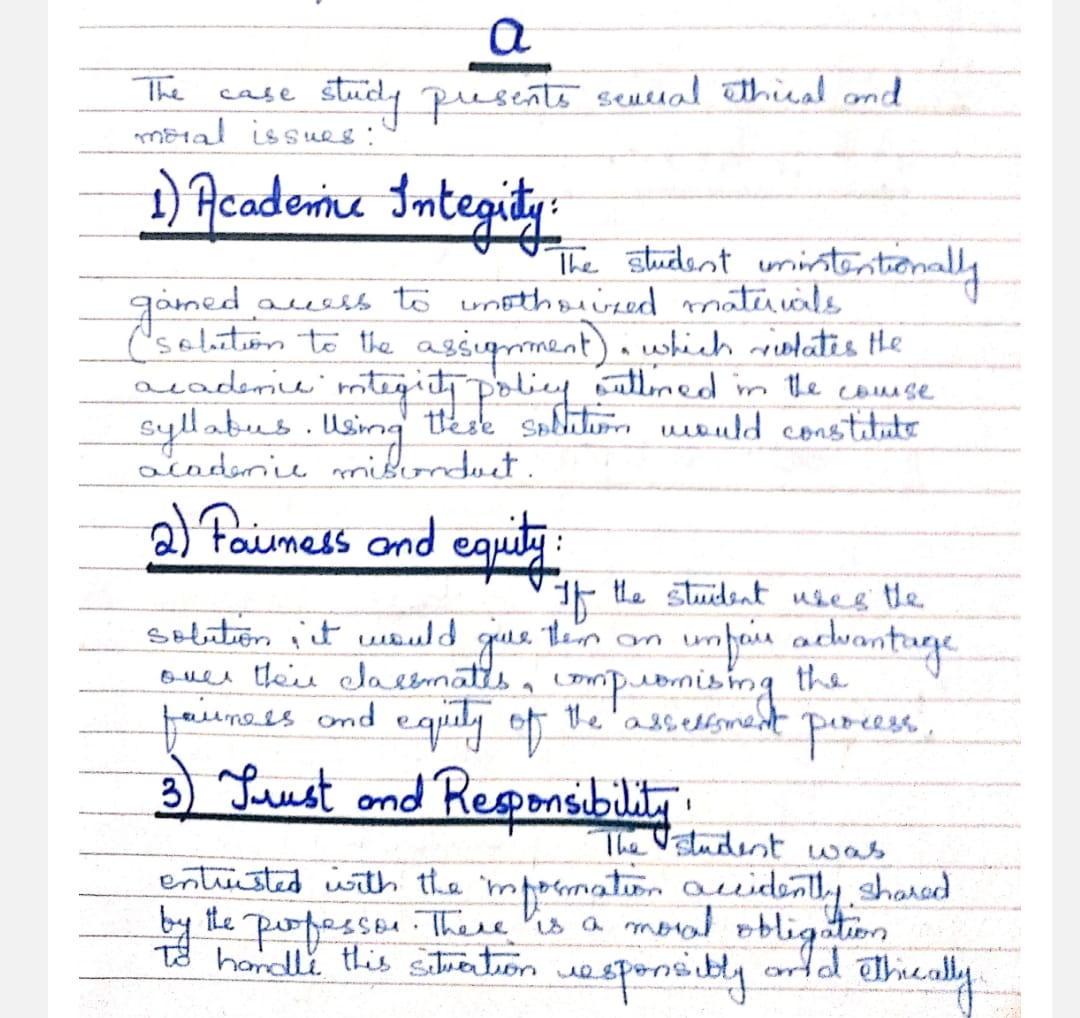 a
The case study presents several ethical and
moral issues:
1) Academic Integity:
The student unintentionally
gained access to unothorized materials
(solution to the assignment), which violates the
academic integity policy outlined in the course
syllabus. Using these solution would constitute
academic misconduct.
2) Fairness and equity:
If the student uses the
solution, it would give them an unfair advantage
over their classmates, compromising the
fairness and equity of the assessment process.
3) Trust and Responsibility:
The student was
entrusted with the information accidently shared
by the professor. There is a moral obligation
to handle this situation responsibly and ethically.